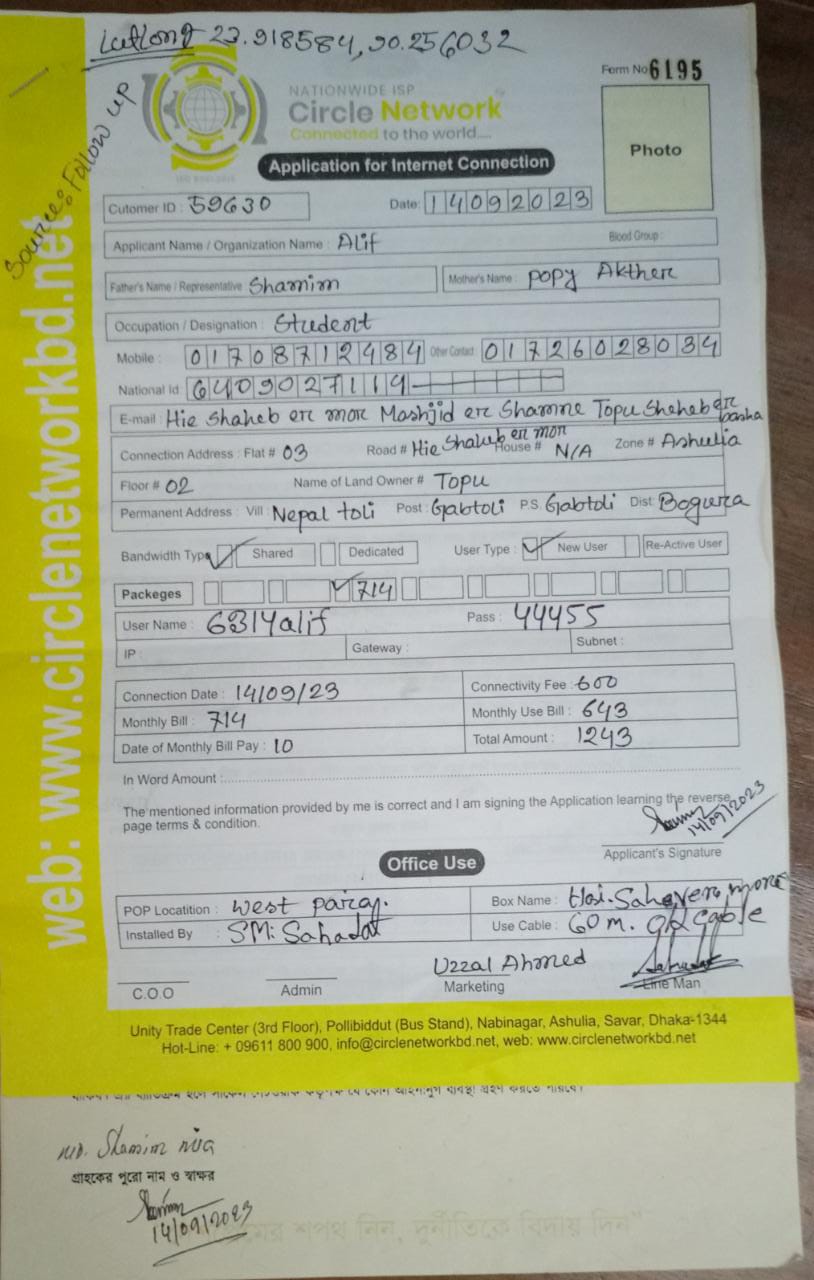 LatLong 23.918584, 90.256032
Source: Follow up
web: www.circlenetworkbd.net
NATIONWIDE ISP
Circle Network
Connected to the world....
Form No 6195
Photo
Application for Internet Connection
Cutomer ID : 59630 Date: 14092023
Applicant Name / Organization Name : Alif Blood Group :
Father's Name / Representative Shamim Mother's Name : popy Akther
Occupation / Designation : Student
Mobile : 01708712484 Other Contact 01726028034
National Id 6409027114
E-mail : Hie Shaheb er mor Moshjid er Shamne Topu Sheheb er basha
Connection Address : Flat # 03 Road # Hie Shaheb er mor House # N/A Zone # Ashulia
Floor # 02 Name of Land Owner # Topu
Permanent Address : Vill : Nepal toli Post : Gabtoli P.S. Gabtoli Dist: Bogura
Bandwidth Type Shared Dedicated User Type : New User Re-Active User
Packeges 714
User Name : 6314alif Pass : 44455
IP : Gateway : Subnet :
Connection Date : 14/09/23 Connectivity Fee : 600
Monthly Bill : 714 Monthly Use Bill : 643
Date of Monthly Bill Pay : 10 Total Amount : 1243
In Word Amount :
The mentioned information provided by me is correct and I am signing the Application learning the reverse
page terms & condition.
14/09/2023
Applicant's Signature
Office Use
POP Locatition : west paray. Box Name : Hai. Saheyero more
Installed By : SM: Sahadat Use Cable : 60 m. Cable
Uzzal Ahmed
C.O.O Admin Marketing Line Man
Unity Trade Center (3rd Floor), Pollibiddut (Bus Stand), Nabinagar, Ashulia, Savar, Dhaka-1344
Hot-Line: + 09611 800 900, info@circlenetworkbd.net, web: www.circlenetworkbd.net
MD. Shamim mia
গ্রাহকের পুরো নাম ও স্বাক্ষর
14/09/2023
শপথ নিন, দুর্নীতিকে বিদায় দিন"